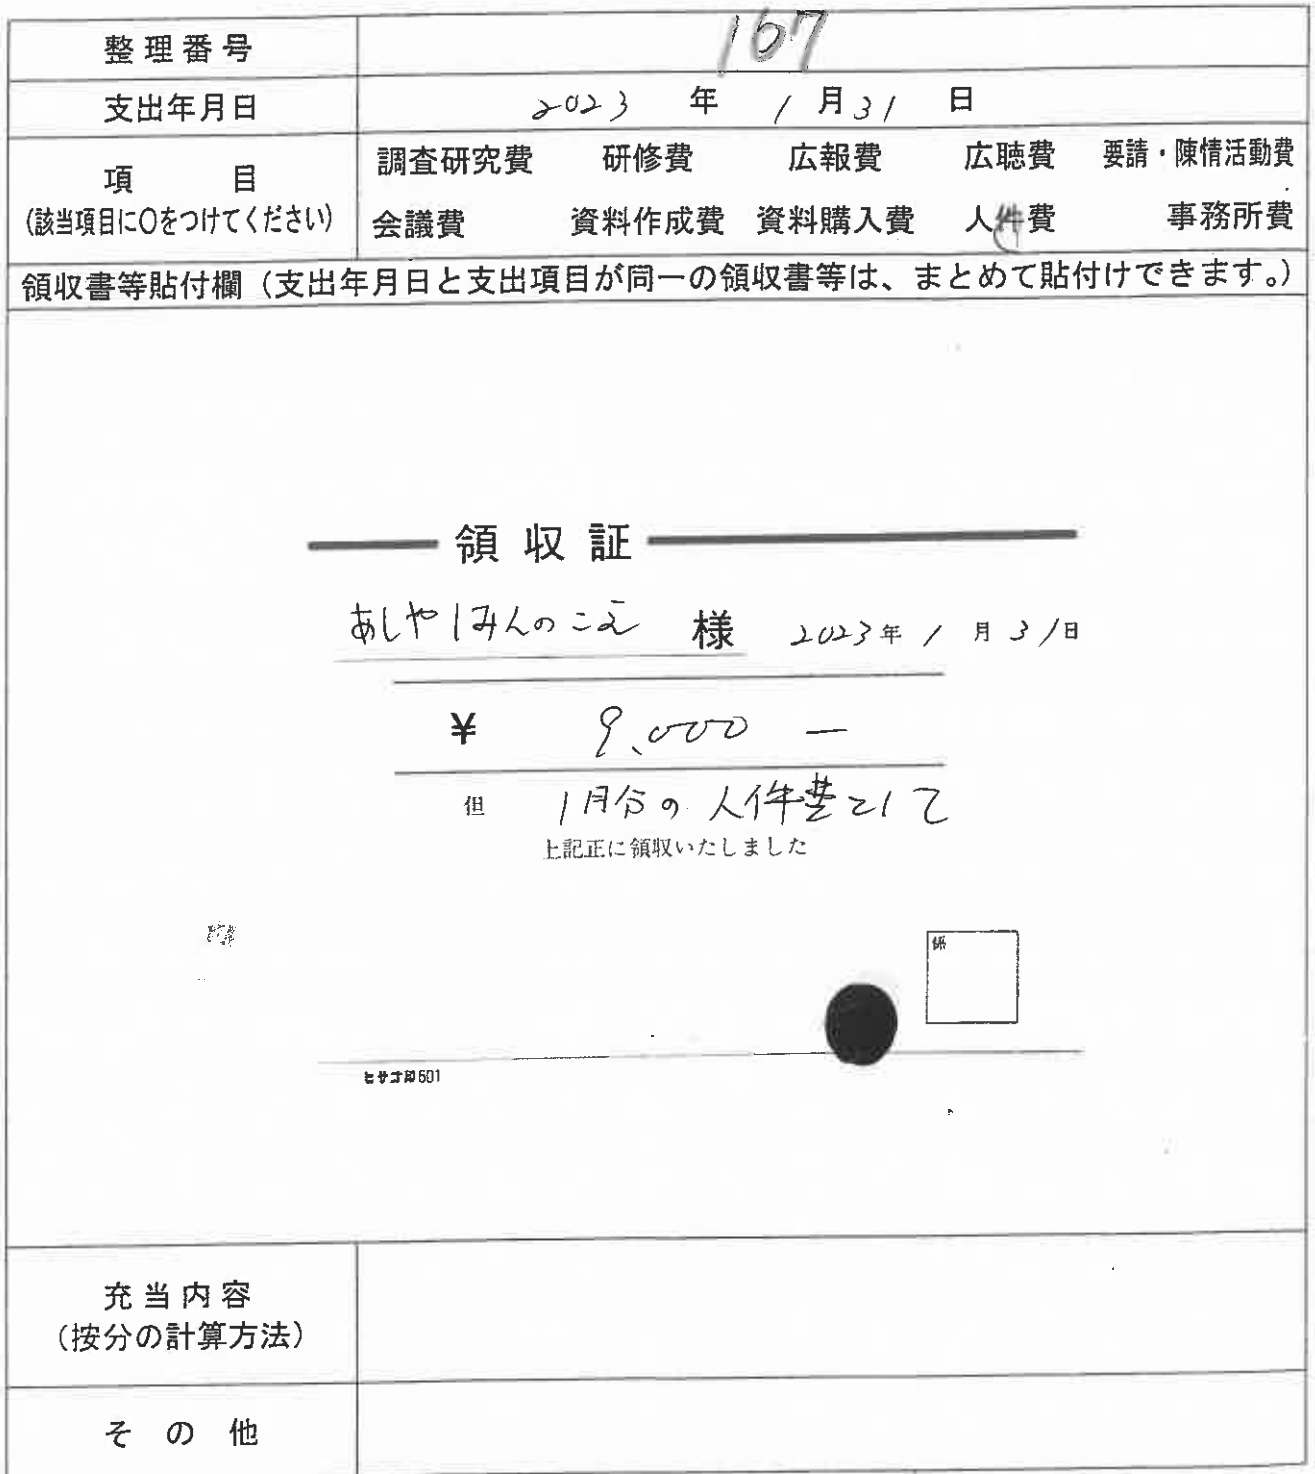 整理番号 167
支出年月日 2023 年 1 月 31 日
項 目
(該当項目に○をつけてください)
調査研究費 研修費 広報費 広聴費 要請・陳情活動費
会議費 資料作成費 資料購入費 人件費 事務所費
領収書等貼付欄（支出年月日と支出項目が同一の領収書等は、まとめて貼付けできます。）
領収証
あしやしみんのこえ 様 2023年 1 月 31日
¥ 9,000 —
但 1月分の人件費として
上記正に領収いたしました
係
ヒサゴ印601
充当内容
（按分の計算方法）
その他